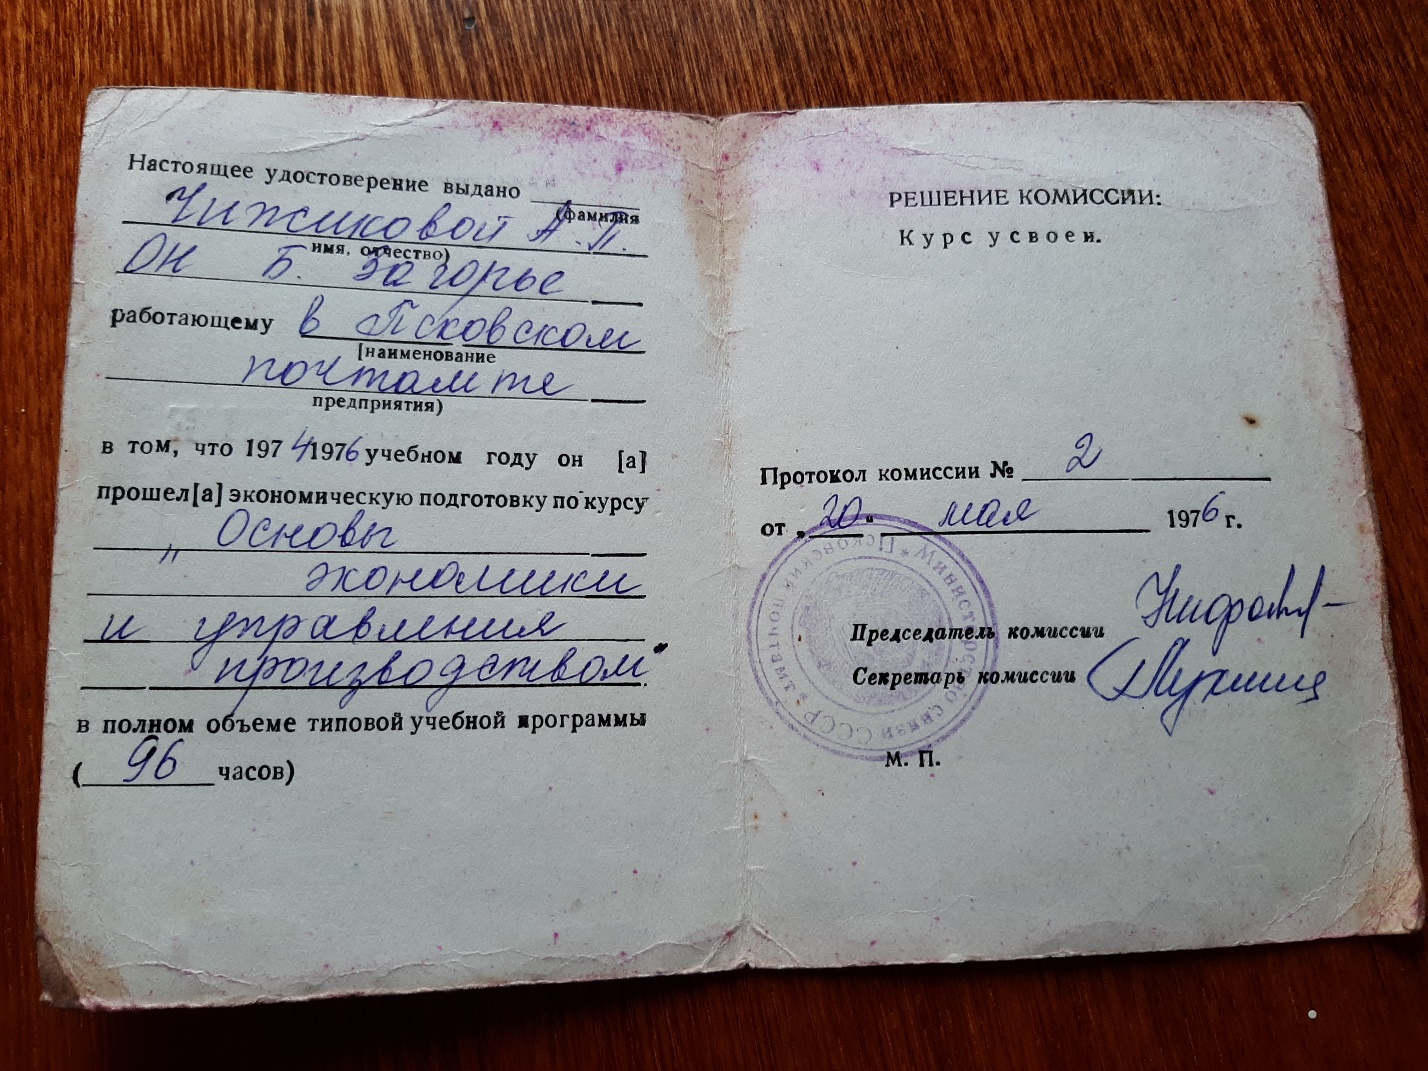 Настоящее удостоверение выдано
(фамилия
Чижиковой А.П.
имя, отчество)
ОН Б. Загорье
работающему в Псковском
[наименование
почтамте
предприятия)
в том, что 1974 1976 учебном году он [а]
прошел[а] экономическую подготовку по курсу
„ Основы
экономики
и управления
производством"
в полном объеме типовой учебной программы
(96 часов)
РЕШЕНИЕ КОМИССИИ:
Курс усвоен.
Протокол комиссии № 2
от „20" мая 1976 г.
Председатель комиссии
Секретарь комиссии
М. П.
Министерство связи СССР * Псковский почтамт *